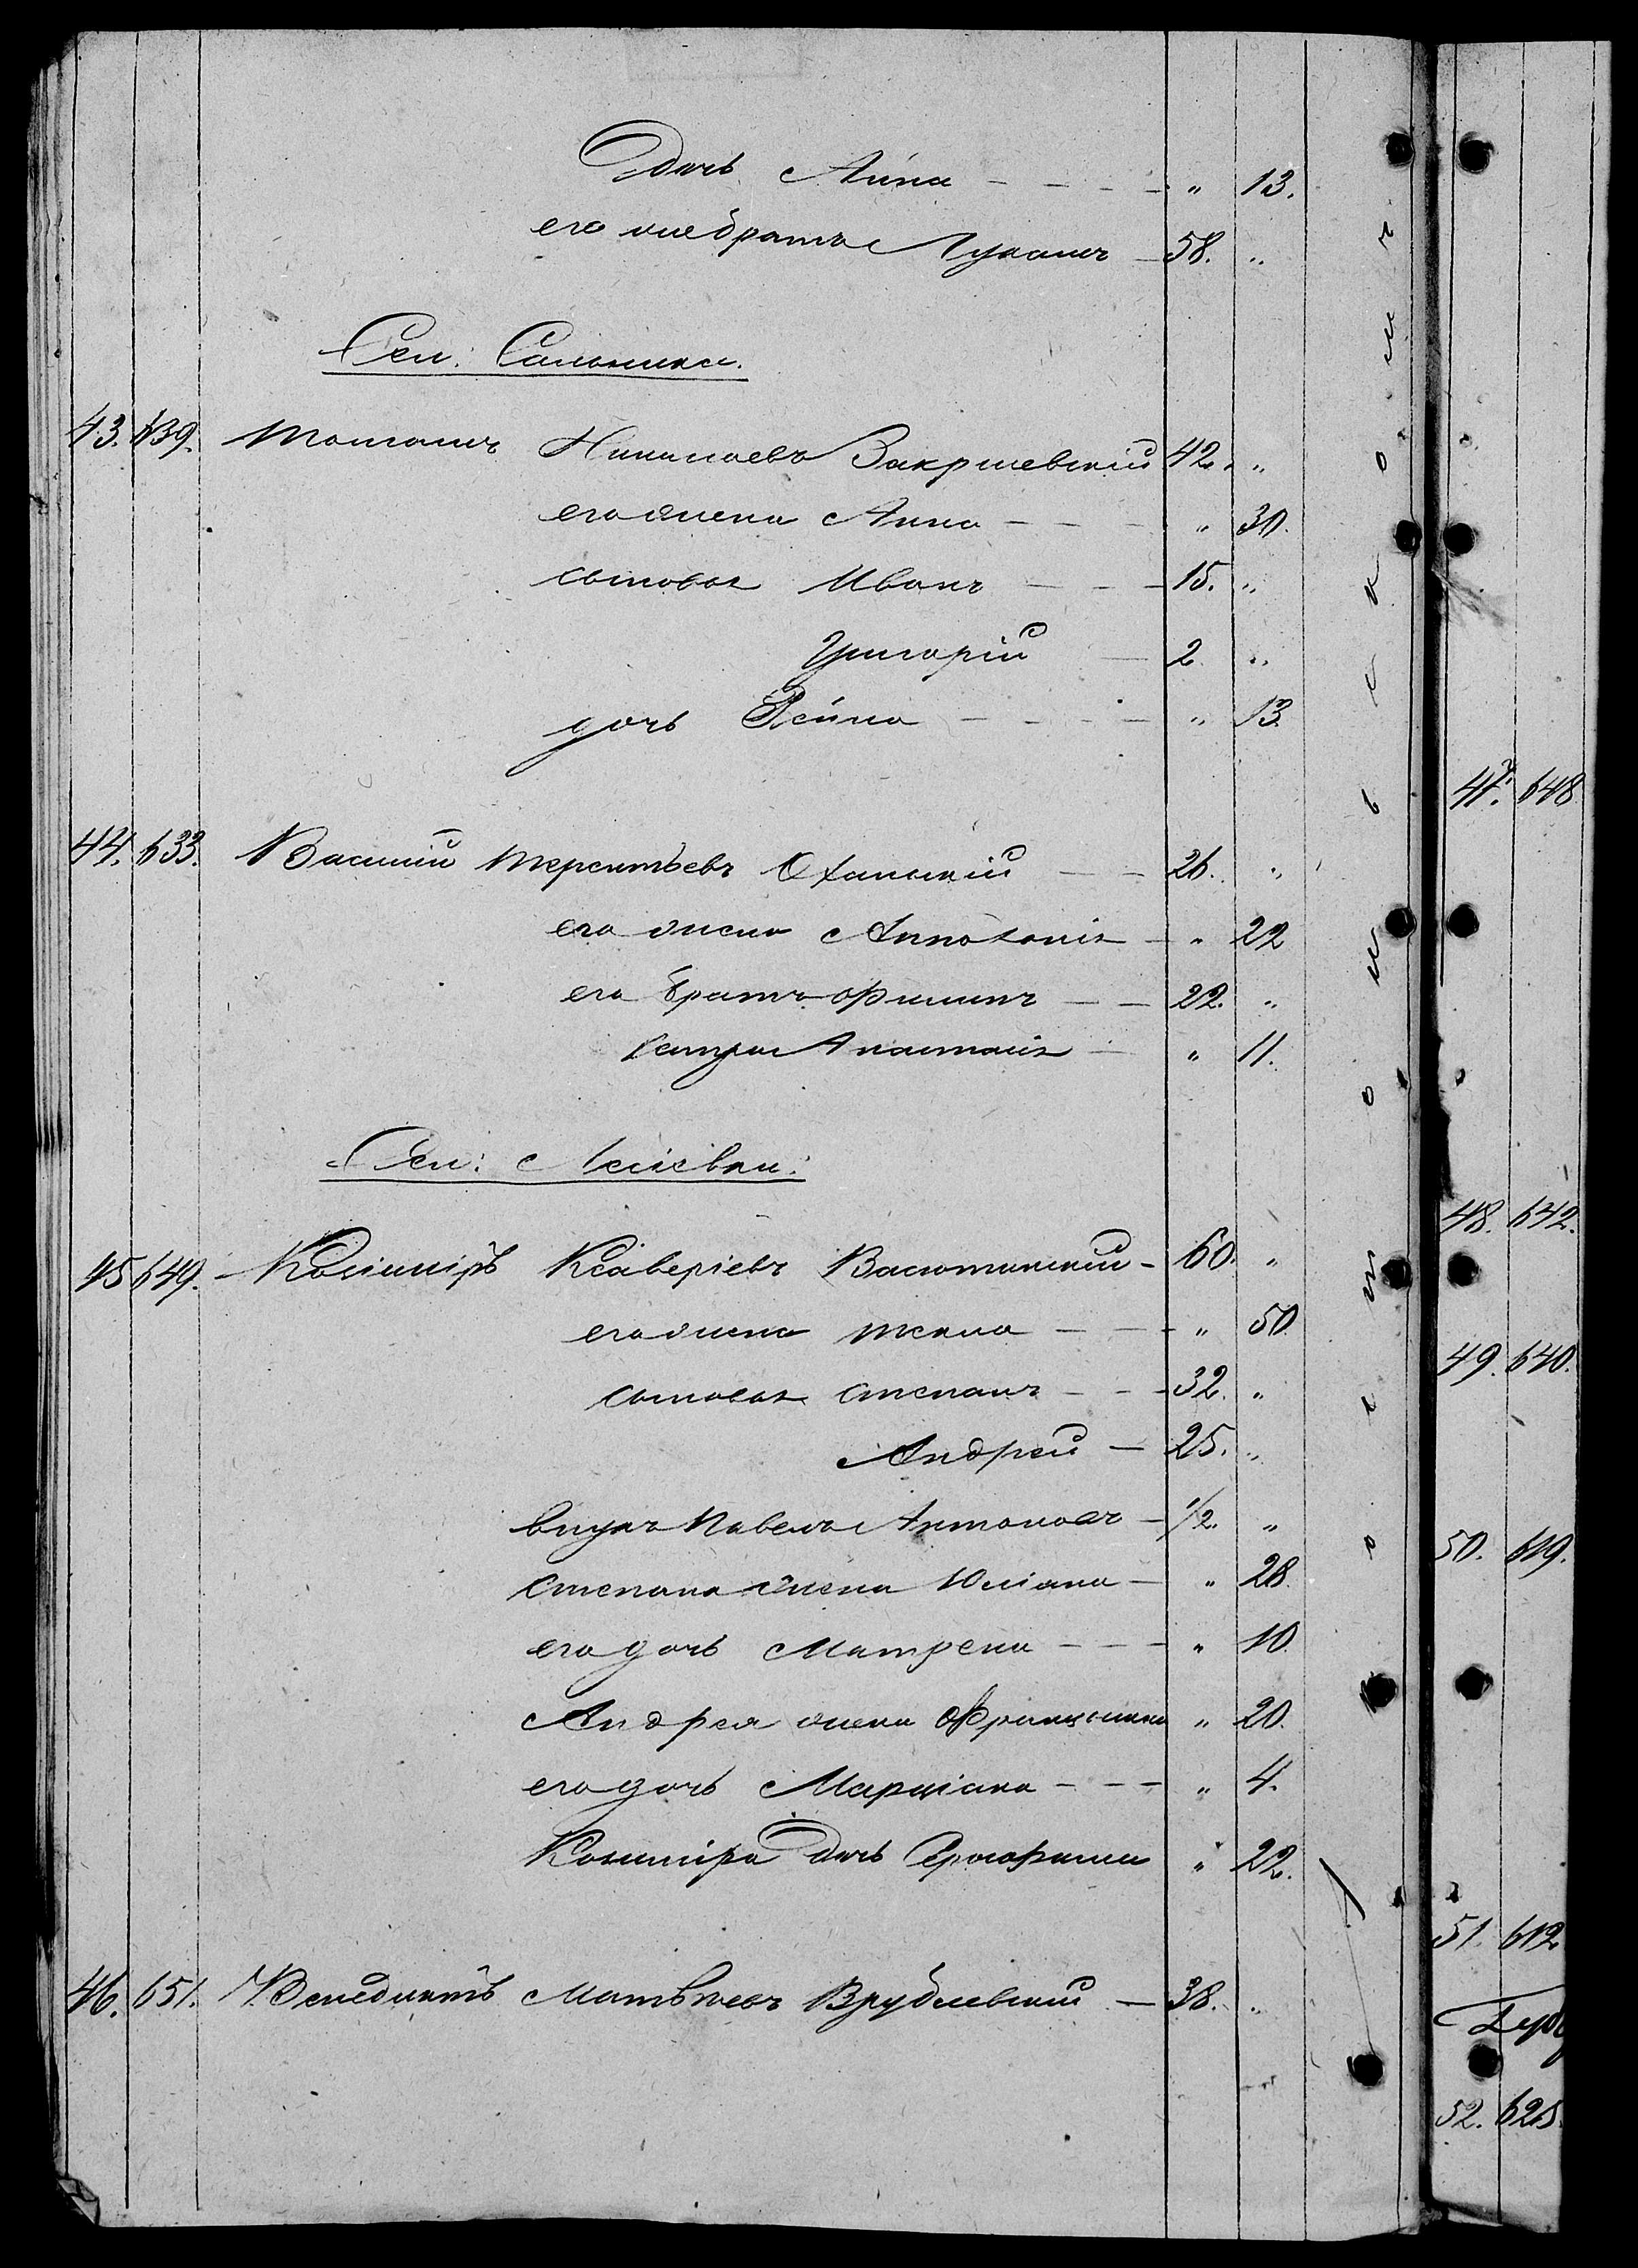 Дочь Анна - - - - " 13.
его же братъ Лукашъ - 58. "
Сел: Сальника.
43. 639. Томашъ Николаевъ Закржевскій 42. "
его жена Анна - - - " 30.
сыновья Иванъ - - - 15. "
Григорій - 2 "
дочь - - - - " 13.
44. 633. Василій Терентьевъ Оханскій - - 26. "
его жена Аполонія - " 22
его братъ Филипъ - - 22. "
сестра Анастасія - " 11.
45 649. Казиміръ Ксаверіевъ Васютинскій - 60. "
его жена Текла - - - " 50
сыновья Степанъ - - - 32. "
Андрей - 25. "
внукъ Павелъ Антоновъ - 1/2. "
Степана жена Юліана - " 28.
его дочь Матрена - - - " 10.
Андрея жена Францышка " 20.
его дочь Марціана - - - " 4.
Казиміра дочь " 22.
46. 651. Венедиктъ Матвѣевъ Врублевскій - 38. "
47. 648
48. 642.
49. 640.
50. 619.
51. 612
52. 625.